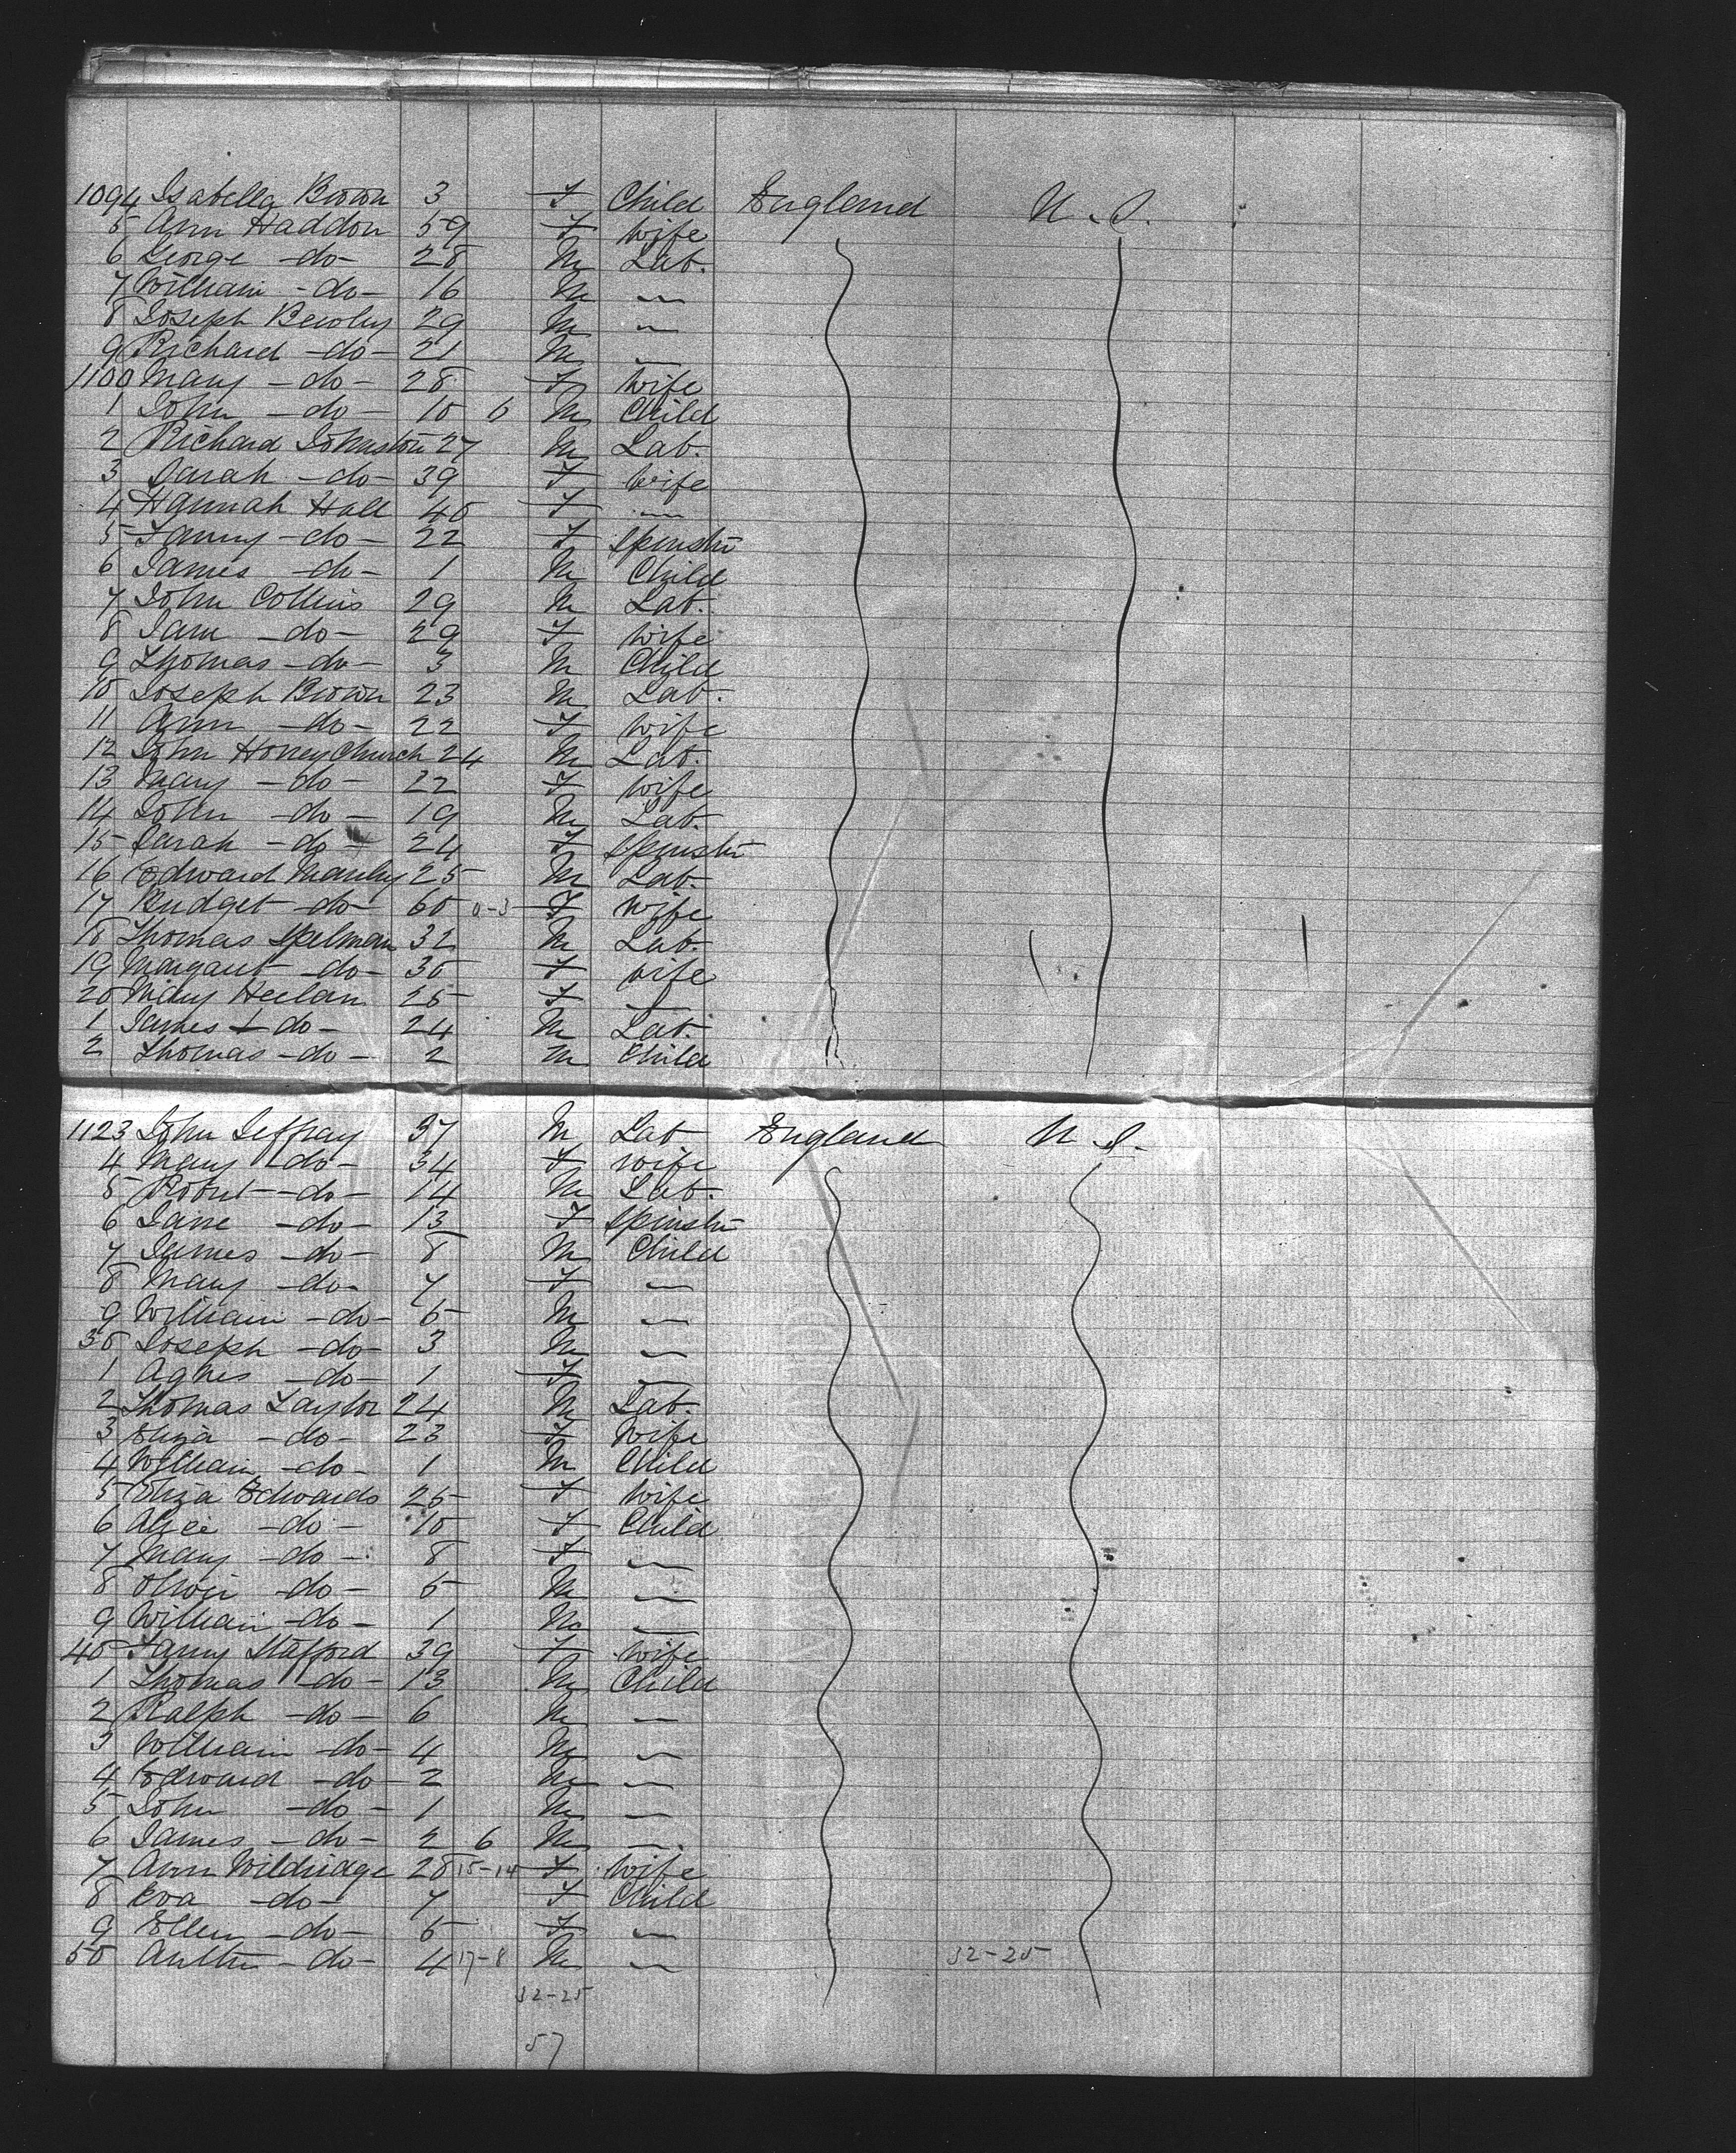 1094 Isabella Brown 3 F Child England U.S.
5 Ann Haddon 59 F Wife
6 George -do- 28 M Lab.
7 William -do- 16 M —
8 Joseph Bewley 29 M —
9 Richard -do- 21 M —
1100 Mary -do- 28 F Wife
1 John -do- 10 6 M Child
2 Richard Johnston 27 M Lab.
3 Sarah -do- 39 F Wife
4 Hannah Hall 40 F —
5 Fanny -do- 22 F Spinstr
6 James -do- 1 M Child
7 John Collins 29 M Lab.
8 Jane -do- 29 F Wife
9 Thomas -do- 3 M Child
10 Joseph Brown 23 M Lab.
11 Ann -do- 22 F Wife
12 John Honeychurch 24 M Lab.
13 Mary -do- 22 F Wife
14 John -do- 19 M Lab.
15 Sarah -do- 24 F Spinstr
16 Edward Manley 25 M Lab.
17 Bridget -do- 60 0-3 F Wife
18 Thomas Spelman 32 M Lab.
19 Margaret -do- 30 F Wife
20 Mary Heelan 25 F —
1 James -do- 24 M Lab.
2 Thomas -do- 2 M Child
1123 John Jeffray 37 M Lab England U.S.
4 Mary -do- 34 F Wife
5 Robert -do- 14 M Lab.
6 Jane -do- 13 F Spinstr
7 James -do- 8 M Child
8 Mary -do- 7 F —
9 William -do- 5 M —
30 Joseph -do- 3 M —
1 Agnes -do- 1 F —
2 Thomas Taylor 24 M Lab.
3 Eliza -do- 23 F Wife
4 William -do- 1 M Child
5 Eliza Edwards 25 F Wife
6 Alice -do- 10 F Child
7 Mary -do- 8 F —
8 Oliver -do- 5 M —
9 William -do- 1 M —
40 Fanny Stafford 39 F Wife
1 Thomas -do- 13 M Child
2 Ralph -do- 6 M —
3 William -do- 4 M —
4 Edward -do- 2 M —
5 John -do- 1 M —
6 James -do- 2 6 M —
7 Ann Wildridge 28 15-14 F Wife
8 Eva -do- 7 F Child
9 Ellen -do- 5 F —
50 Arthur -do- 4 17-8 M — 32-25
32-25
57